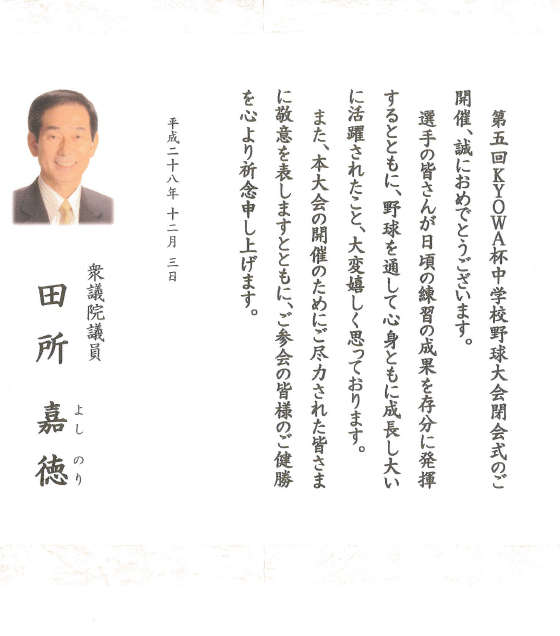 第五回KYOWA杯中学校野球大会閉会式のご
開催、誠におめでとうございます。
選手の皆さんが日頃の練習の成果を存分に発揮
するとともに、野球を通して心身ともに成長し大い
に活躍されたこと、大変嬉しく思っております。
また、本大会の開催のためにご尽力された皆さま
に敬意を表しますとともに、ご参会の皆様のご健勝
を心より祈念申し上げます。
平成二十八年 十二月 三日
衆議院議員
田所 嘉徳
よし のり